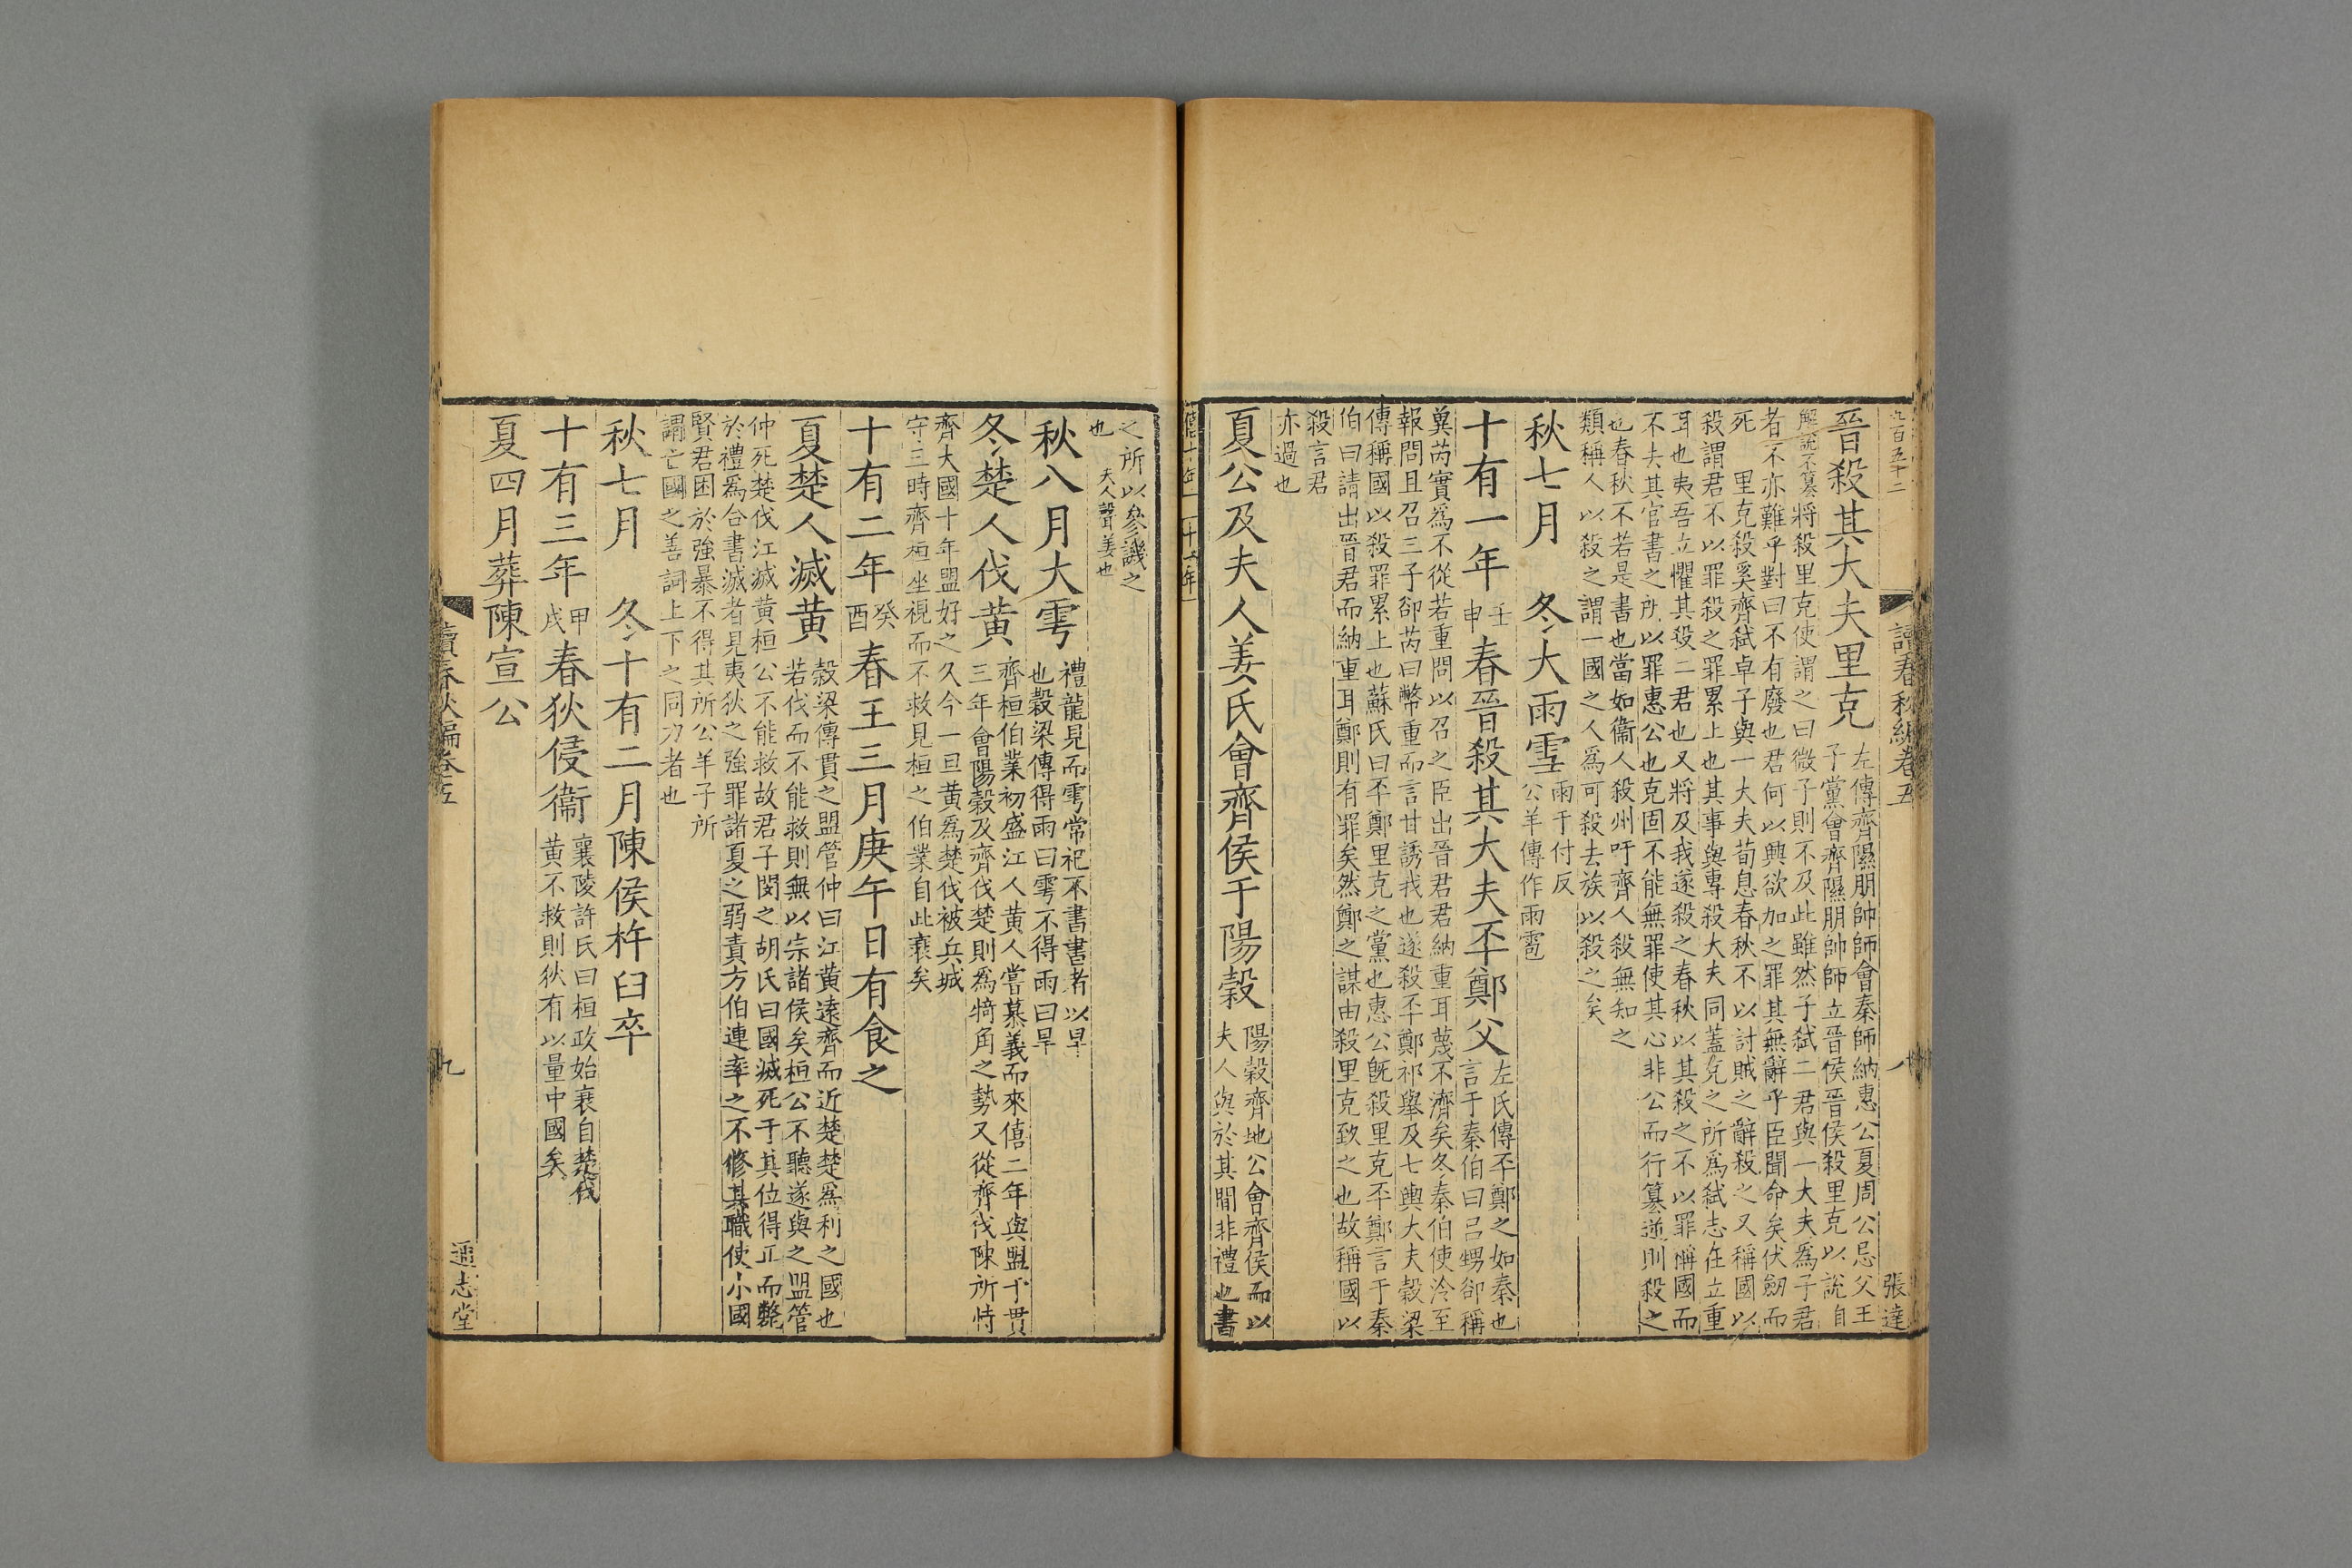 九百五十二
讀春秋編卷五
八
張達
晉殺其大夫里克
左傳齊隰朋帥師會秦師納惠公夏周公忌父王
子黨會齊隰朋帥師立晉侯晉侯殺里克以說自
解說不篡將殺里克使謂之曰微子則不及此雖然子弒二君與一大夫爲子君
者不亦難乎對曰不有廢也君何以興欲加之罪其無辭乎臣聞命矣伏劒而
死 里克殺奚齊弒卓子與一大夫荀息春秋不以討賊之辭殺之又稱國以
殺謂君不以罪殺之罪累上也其事與專殺大夫同蓋克之所爲弒志在立重
耳也夷吾立懼其殺二君也又將及我遂殺之春秋以其殺之不以罪稱國而
不去其官書之所以罪惠公也克固不能無罪使其心非公而行篡逆則殺之
也春秋不若是書也當如衞人殺州吁齊人殺無知之
類稱人以殺之謂一國之人爲可殺去族以殺之矣
秋七月 冬大雨雪
雨于付反
公羊傳作雨雹
十有一年
壬
申
春晉殺其大夫㔻鄭父
左氏傳㔻鄭之如秦也
言于秦伯曰呂甥郤稱
兾芮實爲不從若重問以召之臣出晉君君納重耳蔑不濟矣冬秦伯使泠至
報問且召三子郤芮曰幣重而言甘誘我也遂殺㔻鄭祁舉及七輿大夫穀梁
傳稱國以殺罪累上也蘇氏曰㔻鄭里克之黨也惠公旣殺里克㔻鄭言于秦
伯曰請出晉君而納重耳鄭則有罪矣然鄭之謀由殺里克致之也故稱國以
殺言君
亦過也
夏公及夫人姜氏會齊侯于陽穀
陽穀齊地公會齊侯而以
夫人與於其間非禮也書
僖十年 十一年
之所以參譏之
也 夫人聲姜也
秋八月大雩
禮龍見而雩常祀不書書者以旱
也穀梁傳得雨曰雩不得雨曰旱
冬楚人伐黃
齊桓伯業初盛江人黃人嘗慕義而來僖二年與盟于貫
三年會陽穀及齊伐楚則爲犄角之勢又從齊伐陳所恃
齊大國十年盟好之久今一旦黃爲楚伐被兵城
守三時齊桓坐視而不救見桓之伯業自此衰矣
十有二年
癸
酉
春王三月庚午日有食之
夏楚人滅黃
穀梁傳貫之盟管仲曰江黃遠齊而近楚楚爲利之國也
若伐而不能救則無以宗諸侯矣桓公不聽遂與之盟管
仲死楚伐江滅黃桓公不能救故君子閔之胡氏曰國滅死于其位得正而斃
於禮爲合書滅者見夷狄之強罪諸夏之弱責方伯連率之不修其職使小國
賢君困於強暴不得其所公羊子所
謂亡國之善詞上下之同力者也
秋七月 冬十有二月陳侯杵臼卒
十有三年
甲
戌
春狄侵衞
襄陵許氏曰桓政始衰自楚伐
黃不救則狄有以量中國矣
夏四月葬陳宣公
讀春秋編卷五
九
通志堂